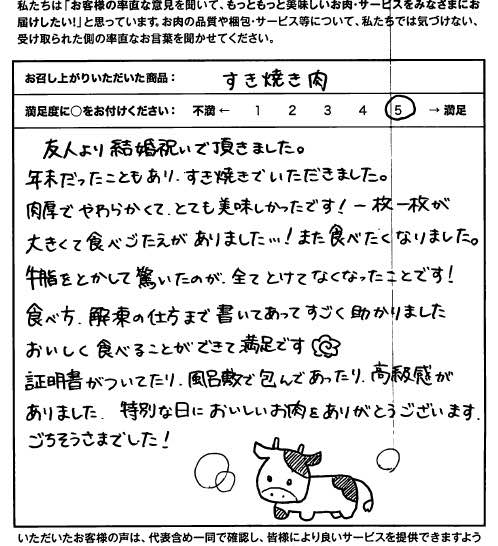 私たちは「お客様の率直な意見を聞いて、もっともっと美味しいお肉・サービスをみなさまにお
届けしたい!」と思っています。お肉の品質や梱包・サービス等について、私たちでは気づけない、
受け取られた側の率直なお言葉を聞かせてください。
お召し上がりいただいた商品： すき焼き肉
満足度に○をお付けください： 不満 ← 1 2 3 4 5 → 満足
友人より結婚祝いで頂きました。
年末だったこともあり、すき焼きでいただきました。
肉厚でやわらかくて、とても美味しかったです！一枚一枚が
大きくて食べごたえがありました…！また食べたくなりました。
牛脂をとかして驚いたのが、全てとけてなくなったことです！
食べ方、解凍の仕方まで書いてあってすごく助かりました
おいしく食べることができて満足です
証明書がついてたり、風呂敷で包んであったり、高級感が
ありました、特別な日においしいお肉をありがとうございます、
ごちそうさまでした！
いただいたお客様の声は、代表含め一同で確認し、皆様により良いサービスを提供できますよう